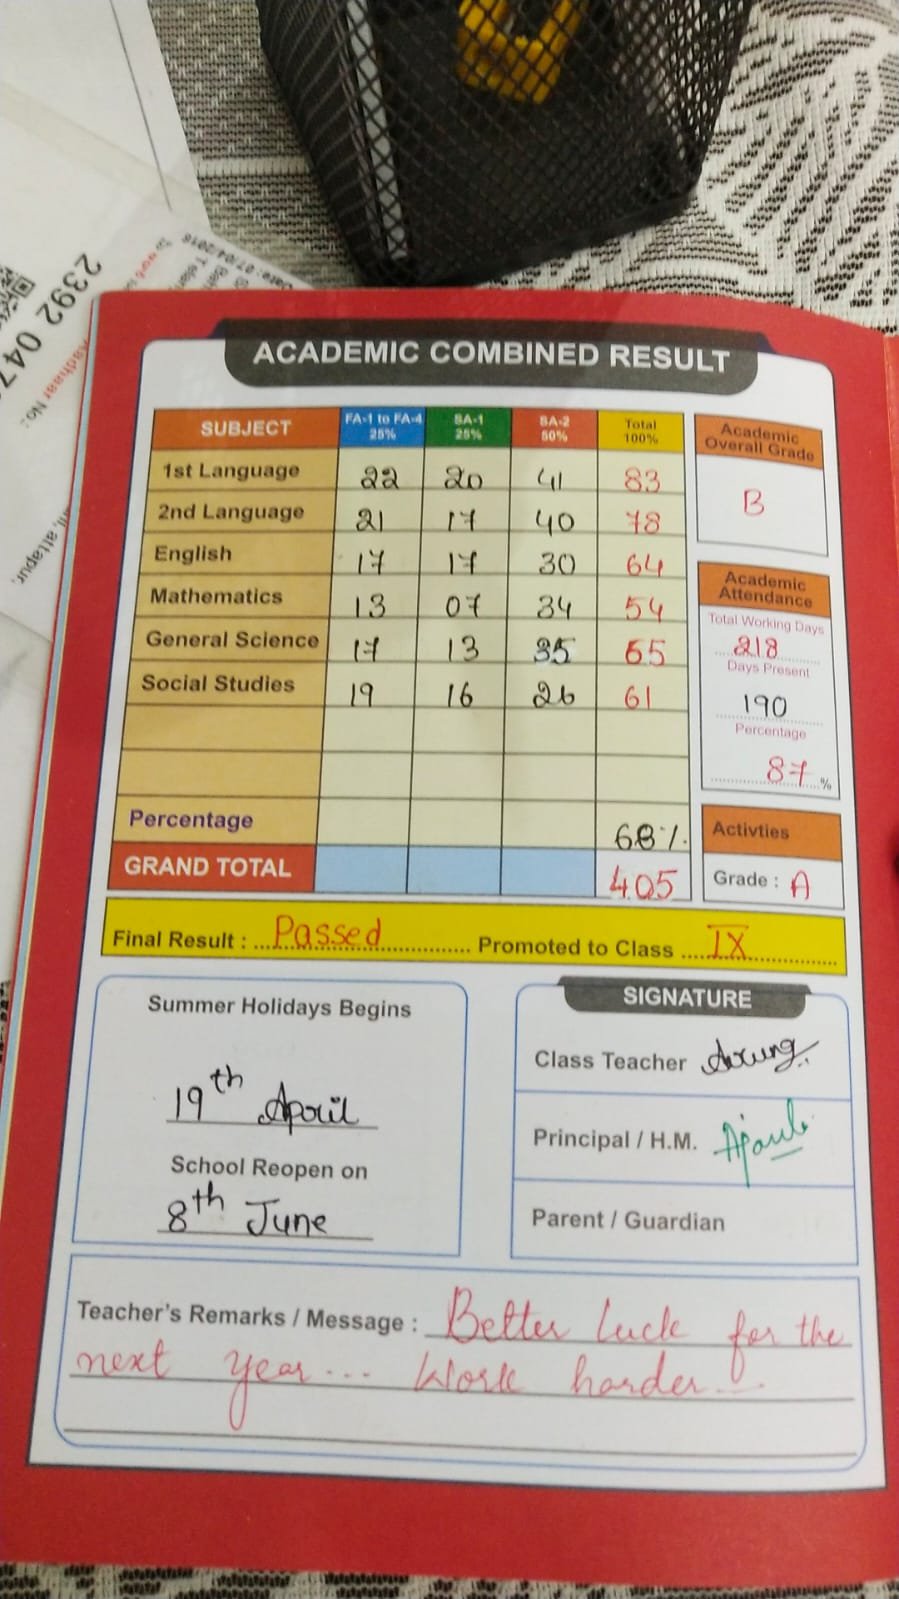 2392 047
Aadhaar No:
Date: 07/04/2018
attapur,
ACADEMIC COMBINED RESULT
SUBJECT FA-1 to FA-4 25% SA-1 25% SA-2 50% Total 100%
1st Language 22 20 41 83
2nd Language 21 17 40 78
English 17 17 30 64
Mathematics 13 07 34 54
General Science 17 13 35 65
Social Studies 19 16 26 61
Percentage 68%
GRAND TOTAL 405
Academic
Overall Grade
B
Academic
Attendance
Total Working Days
218
Days Present
190
Percentage
87 %
Activties
Grade : A
Final Result : Passed Promoted to Class IX
Summer Holidays Begins
19th April
School Reopen on
8th June
SIGNATURE
Class Teacher
Principal / H.M.
Parent / Guardian
Teacher's Remarks / Message : Better luck for the
next year... Work harder...